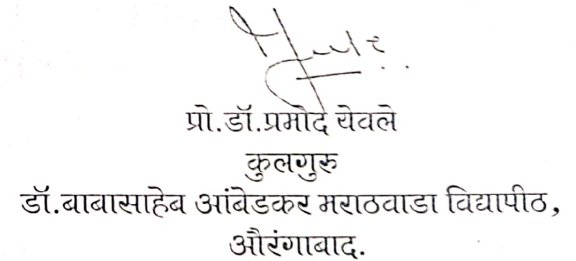 प्रो.डॉ.प्रमोद येवले
कुलगुरू
डॉ.बाबासाहेब आंबेडकर मराठवाडा विद्यापीठ,
औरंगाबाद.